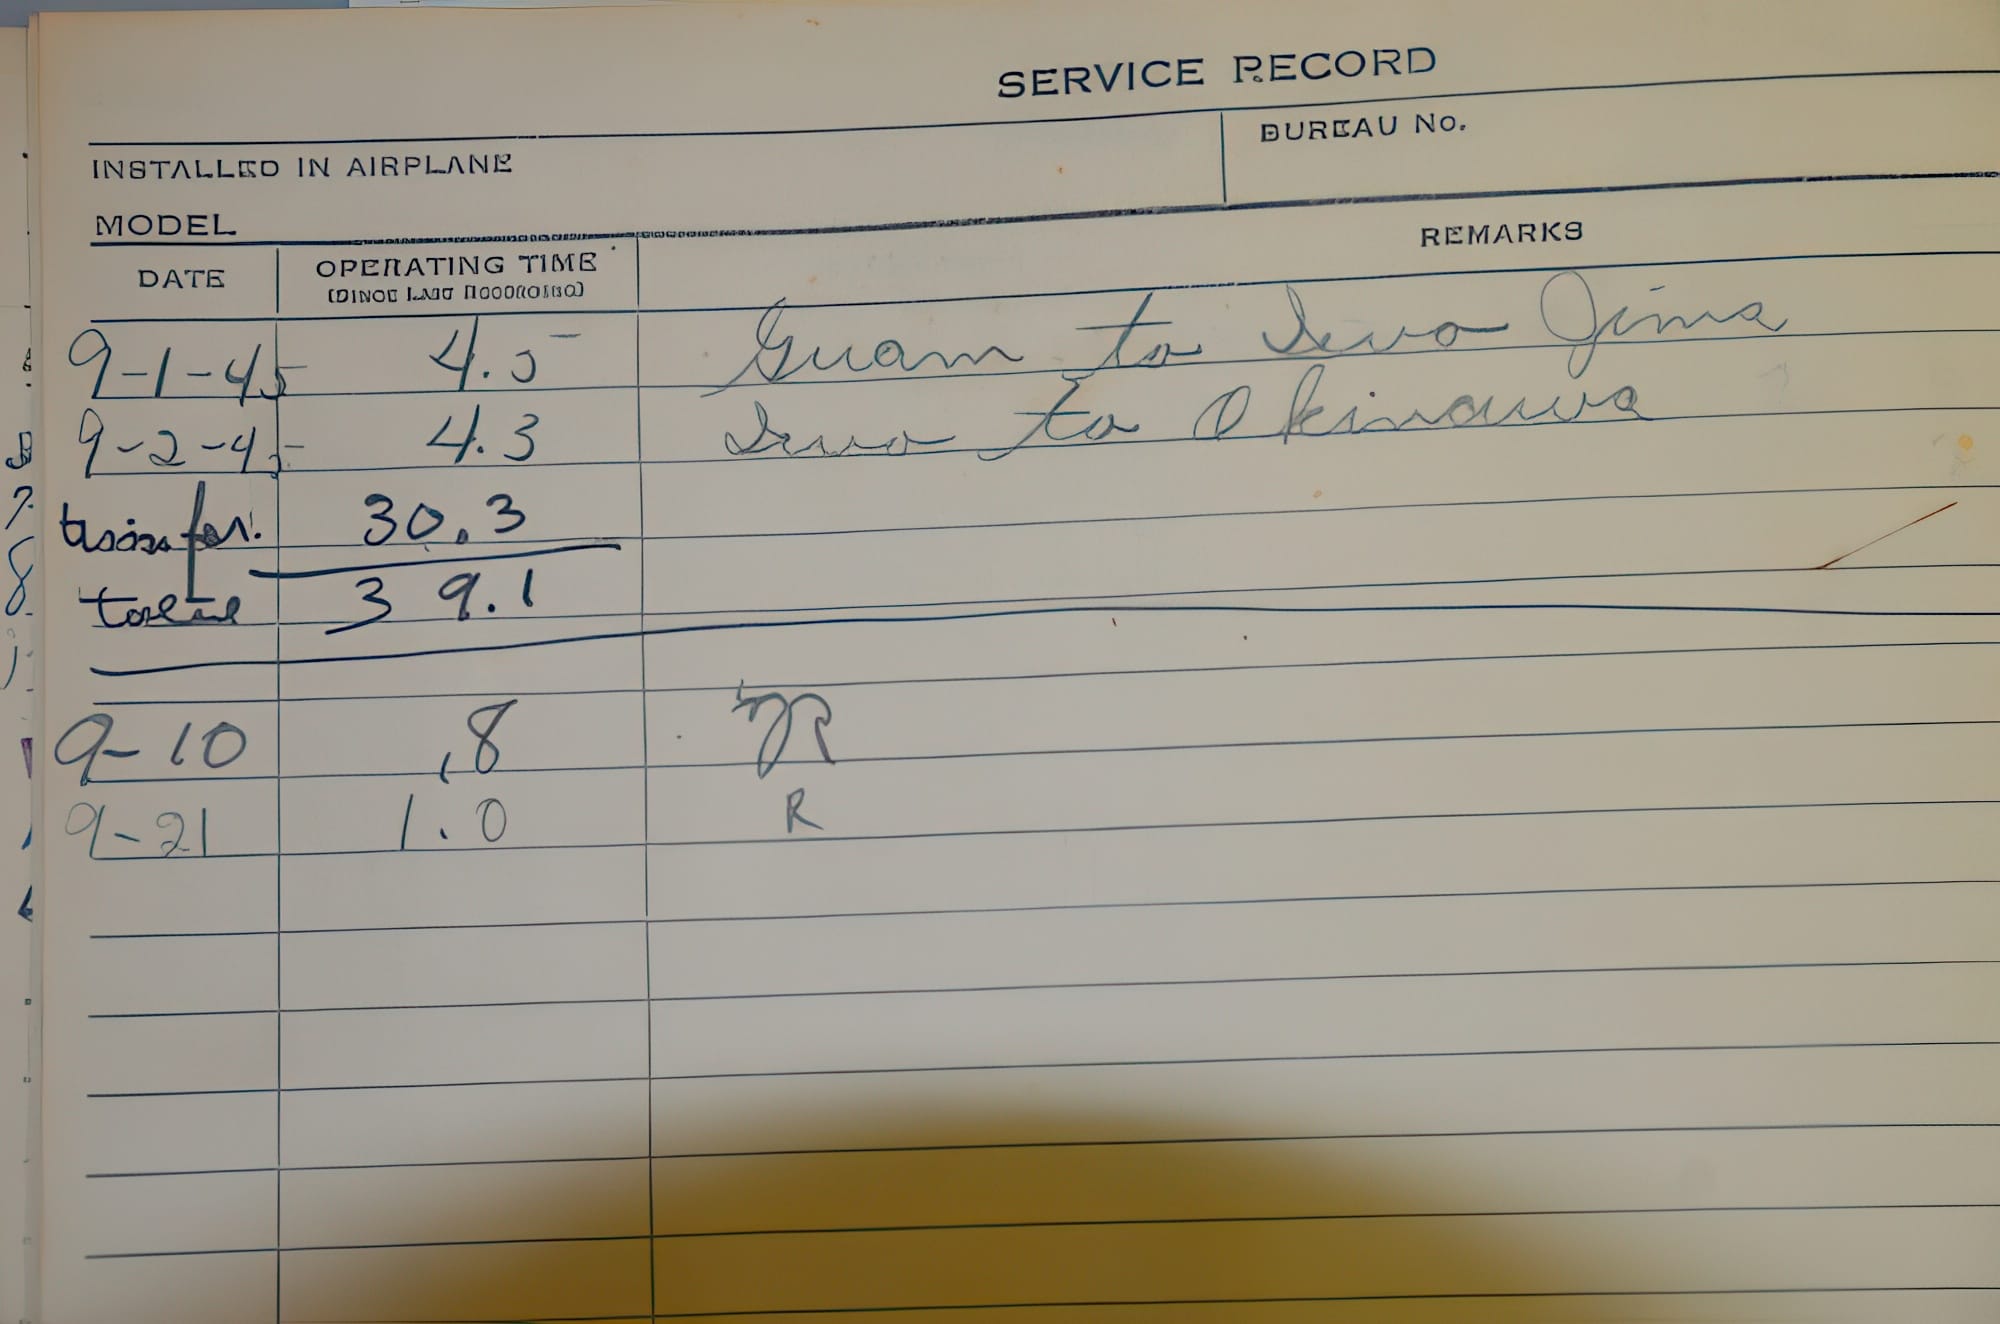 SERVICE RECORD
INSTALLED IN AIRPLANE
BUREAU No.
MODEL
DATE
OPERATING TIME
REMARKS
9-1-45 4.5 Guam to Iwo Jima
9-2-45 4.3 Iwo to Okinawa
transfer. 30.3
total 39.1
9-10 .8
9-21 1.0 R